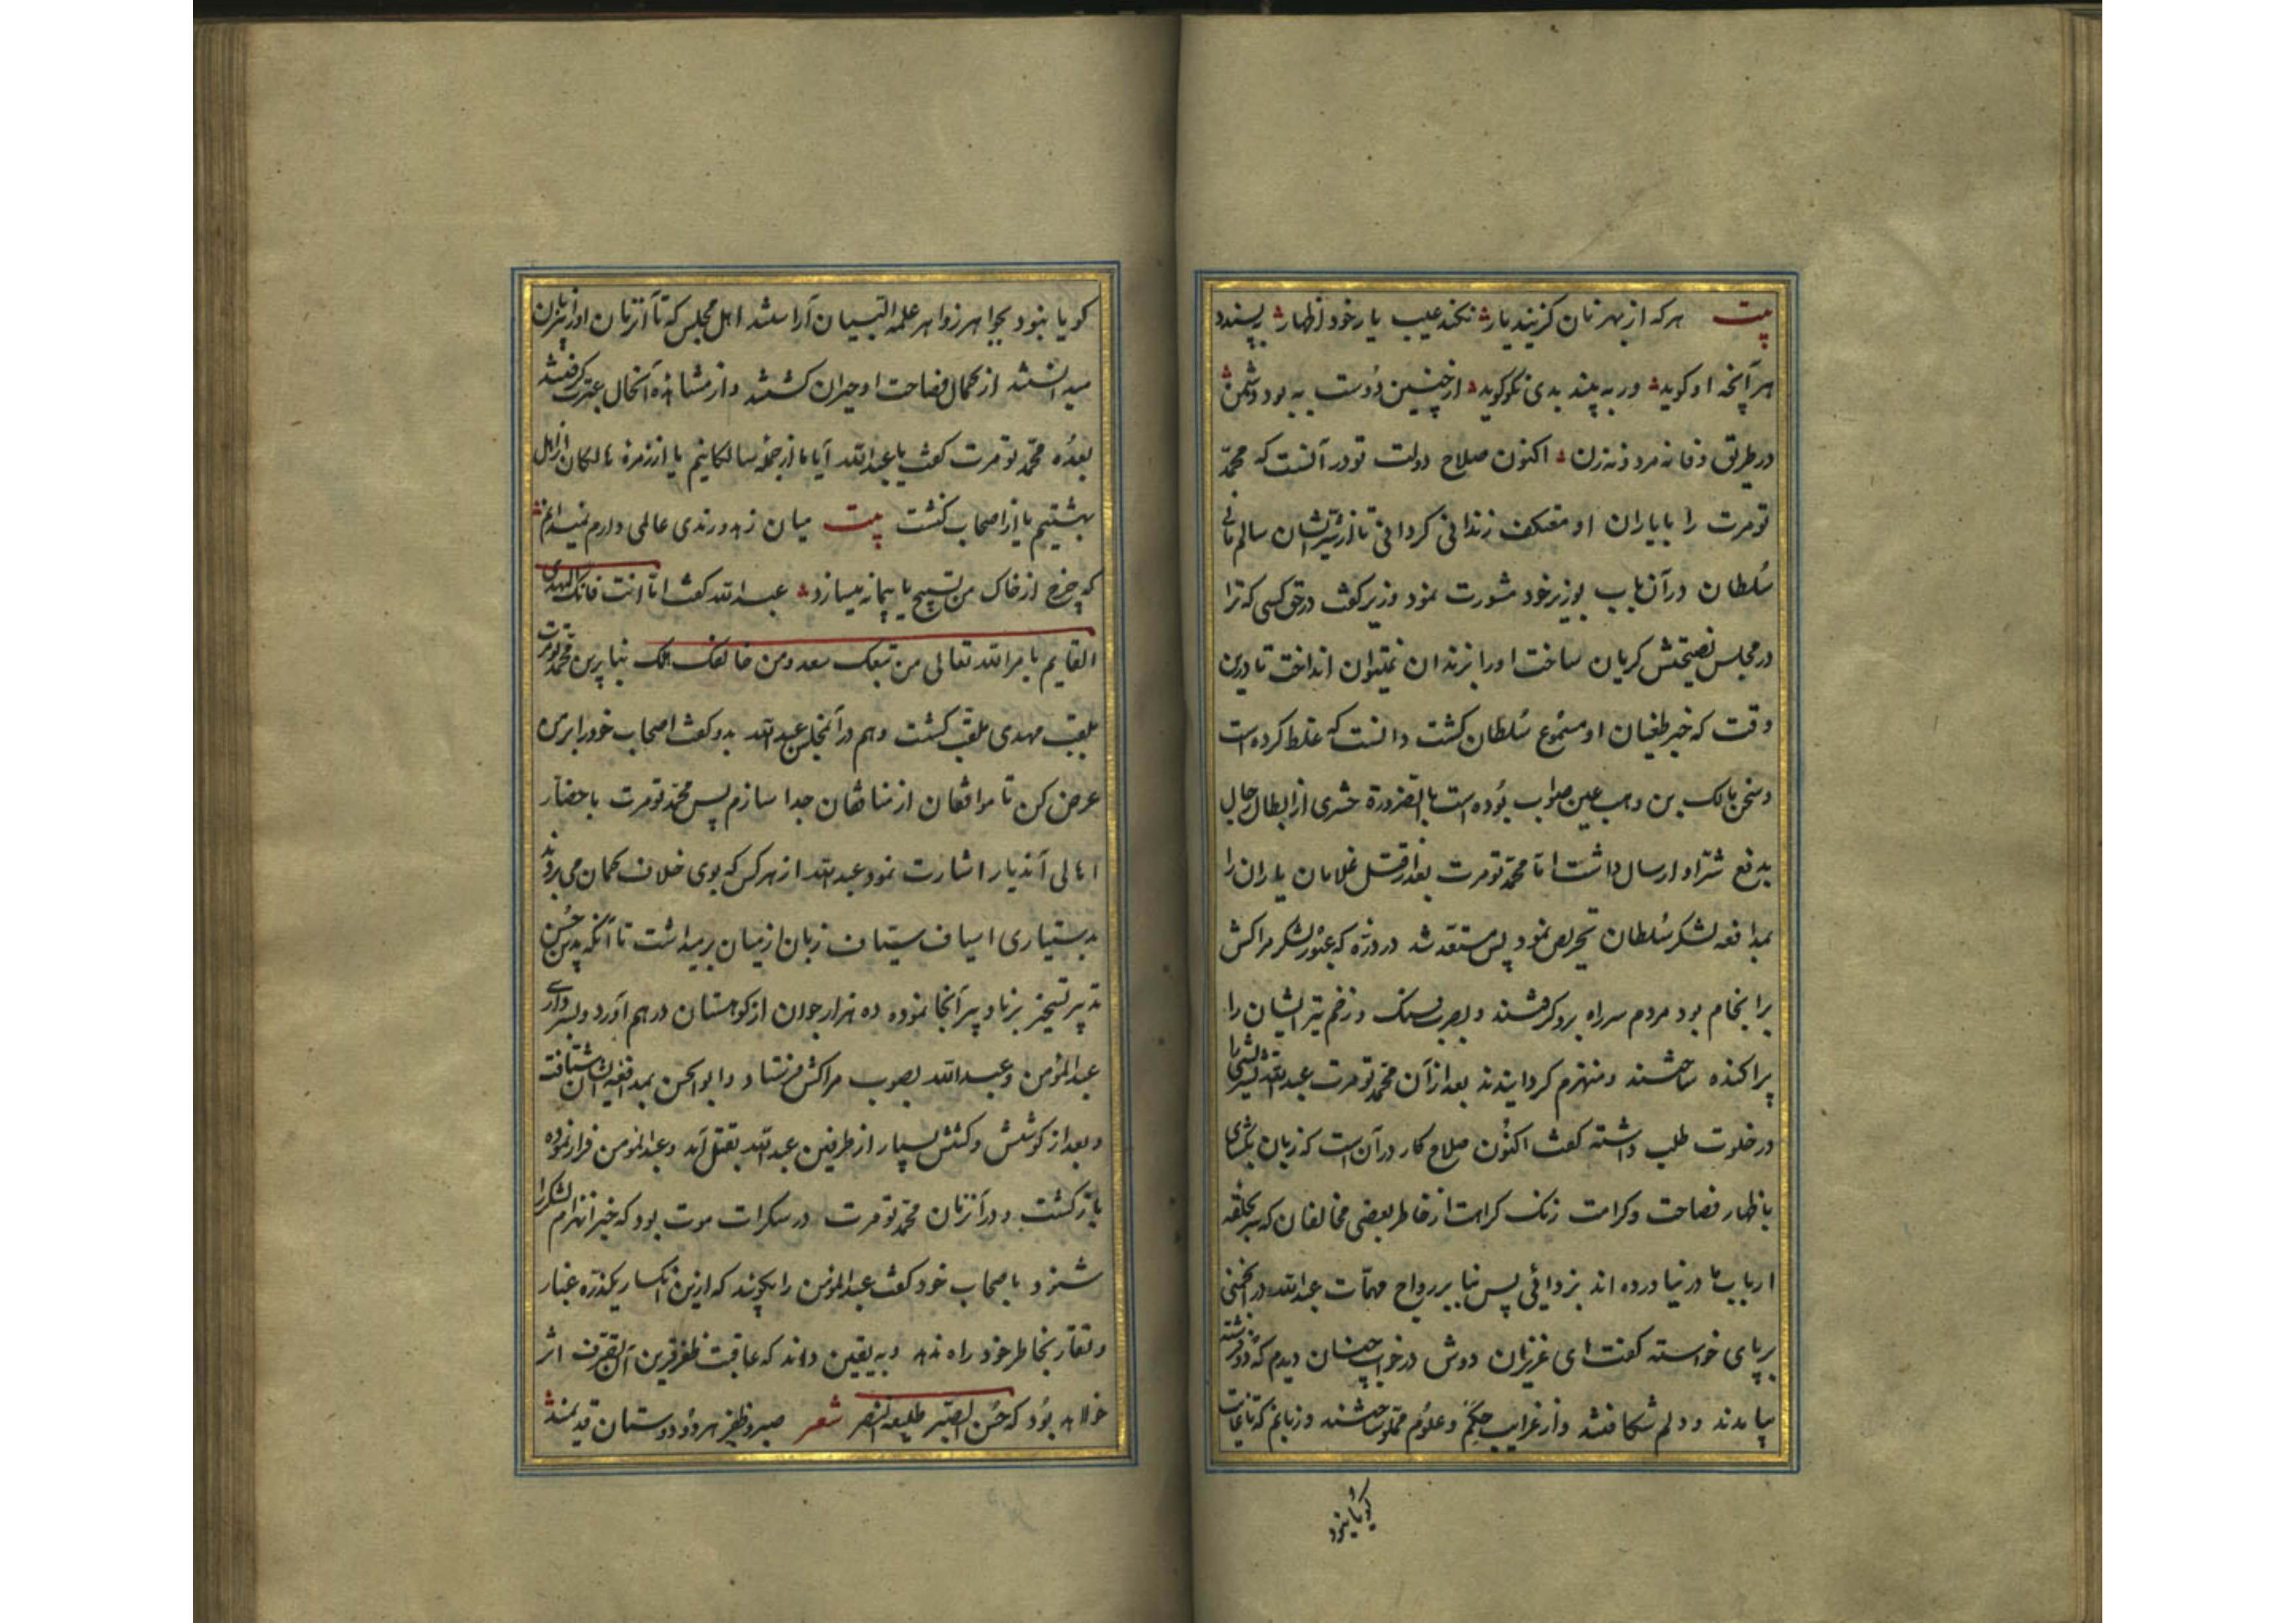 بیت هرکه از بهر نان گزیند یار نکند عیب یار خود اظهار بپسندد
هر آنچه او گوید ور به بیند بدی نکو گوید از چنین دوست به بود دشمن
در طریق وفا نه مرد و نه زن اکنون صلاح دولت تو در آنست که محمد
تومرت را با یاران او معتکف زندانی گردانی تا از شر ایشان سالم مانی
سلطان در آن باب بوزیر خود مشورت نمود وزیر گفت در حق کسی که ترا
در مجلس نصیحتش گریان ساخت او را بزندان نمیتوان انداخت تا درین
وقت که خبر طغیان او مسموع سلطان گشت دانست که غلط کرده است
و سخن مالک بن وهب عین صواب بوده است بالضرورة حشری از ابطال رجال
بدفع شر او ارسال داشت اما محمد تومرت بعد از قتل غلامان یاران را
بمدافعه لشکر سلطان تحریص نمود پس مستعد شد در دره که عبور لشکر مراکش
برانجام بود مردم سر راه برو گرفتند و بضرب سنک و زخم تیر ایشان را
پراکنده ساختند و منهزم گردانیدند بعد از آن محمد تومرت عبدالله
در خلوت طلب داشته گفت اکنون صلاح کار در آن است که زبان بگشای
باظهار فصاحت و کرامت زنک کراهت از خاطر بعضی مخالفان که سر بحلقه
ارباب ما در نیاورده اند بزدائی پس بنا بر رواج مهمات عبدالله در انجمنی
بر پای خواسته گفت ای عزیزان دوش در خواب چنان دیدم که دو فرشته
بیامدند و دلم شکافتند و از غرایب حکم و علوم مملو ساختند و زبانم که تا غایت
گویا نبود
گویا نبود بجواهر زواهر علمه البیان آراستند اهل مجلس که تا آنزمان او را بی زبان
میدانستند از کمال فصاحت او حیران گشتند و از مشاهده آنحال عبرت گرفتند
بعده محمد تومرت گفت یا عبدالله آیا ما از جمله سالکانیم یا از زمره هالکان از اهل
بهشتیم یا از اصحاب کنشت بیت میان زهد و رندی عالمی دارم نمیدانم
که چرخ از خاک من تسبیح یا پیمانه میسازد عبدالله گفت اما انت فانک المهدی
القایم بامر الله تعالی من تبعک سعد و من خالفک هلک بنابرین محمد تومرت
بلقب مهدی ملقب گشت و هم در آنمجلس عبدالله بدو گفت اصحاب خود را برمن
عرض کن تا موافقان از منافقان جدا سازم پس محمد تومرت باحضار
اهالی آندیار اشارت نمود عبدالله از هر کس که بوی خلاف گمان می بردند
بدستیاری اسیاف سیاف زبان از میان برمیداشت تا آنکه بدین حسن
تدبیر تسخیر برنا و پیر آنجا نموده ده هزار جوان از کوهستان درهم آورد و بسرداری
عبدالمؤمن و عبدالله بصوب مراکش فرستاد و ابوالحسن بمدافعه ایشان شتافت
و بعد از کوشش و کشش بسیار از طرفین عبدالله بقتل آمد و عبدالمؤمن فرار نموده
بازگشت و در آنزمان محمد تومرت در سکرات موت بود که خبر انهزام لشکر را
شنود باصحاب خود گفت عبدالمؤمن را بگویند که ازین انکسار یکذره غبار
و نقار بخاطر خود راه ندهد و به یقین داند که عاقبت ظفر قرین آن تصرف اثر
خواهد بود که حسن الصبر طلیعه النصر شعر صبر و ظفر هر دو دوستان قدیمند